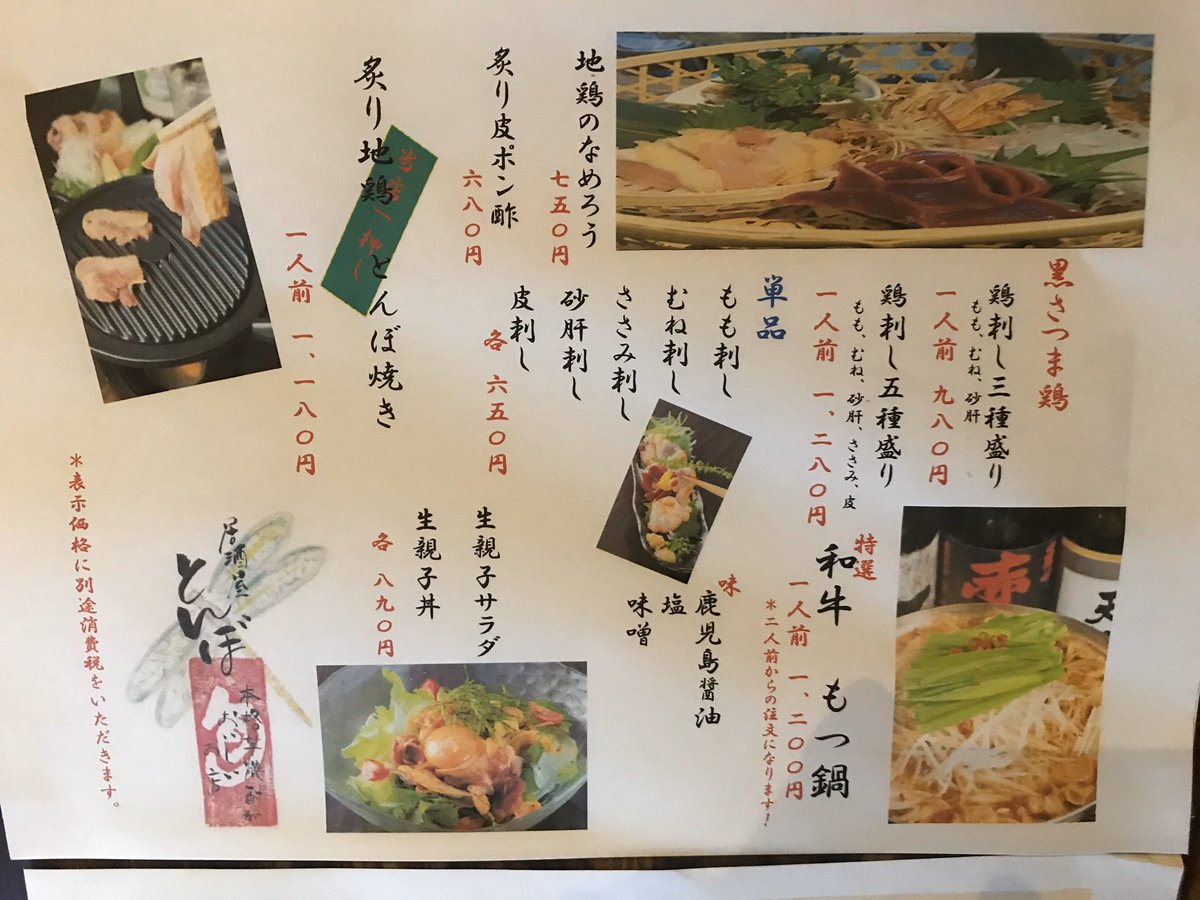 黒さつま鶏
鶏刺し三種盛り
もも、むね、砂肝
一人前 九八〇円
鶏刺し五種盛り
もも、むね、砂肝、ささみ、皮
一人前 一、二八〇円
単品
もも刺し
むね刺し
ささみ刺し
砂肝刺し
皮刺し
各 六五〇円
地鶏のなめろう
七五〇円
炙り皮ポン酢
六八〇円
炙り地鶏 とんぼ焼き
一人前 一、一八〇円
特選
和牛 もつ鍋
一人前 一、二〇〇円
*二人前からの注文になります!
味
鹿児島醤油
塩
味噌
生親子サラダ
生親子丼
各 八九〇円
居酒屋
とんぼ
*表示価格に別途消費税をいただきます。
赤
天